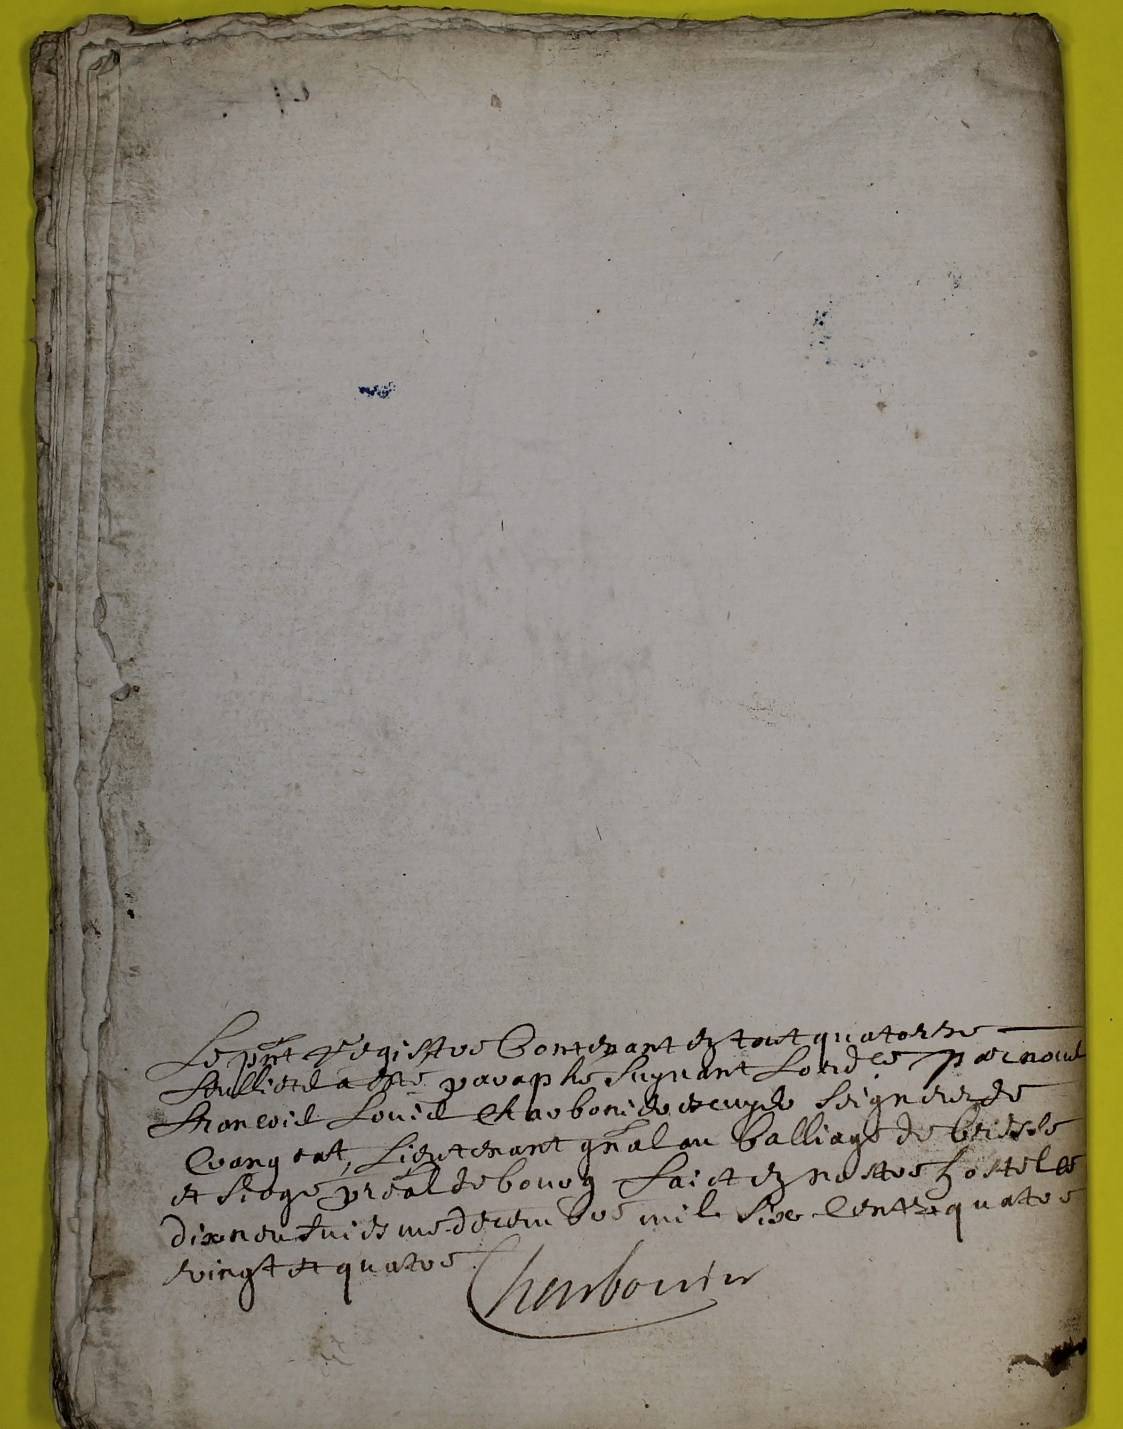 Le pñt Registre Contenant en tout quatorze
feullietz a esté paraphé suyvant Lord ce par nous
francois Louis Charbonier escuyer Seigneur de
Crangeat, Lieutenant gñal au balliage de bresse
et siege preal de bourg faict en nostre hostel ce
dixneufuiesme decembre mil six Centz quatre
vingt et quatre
Charbonnier